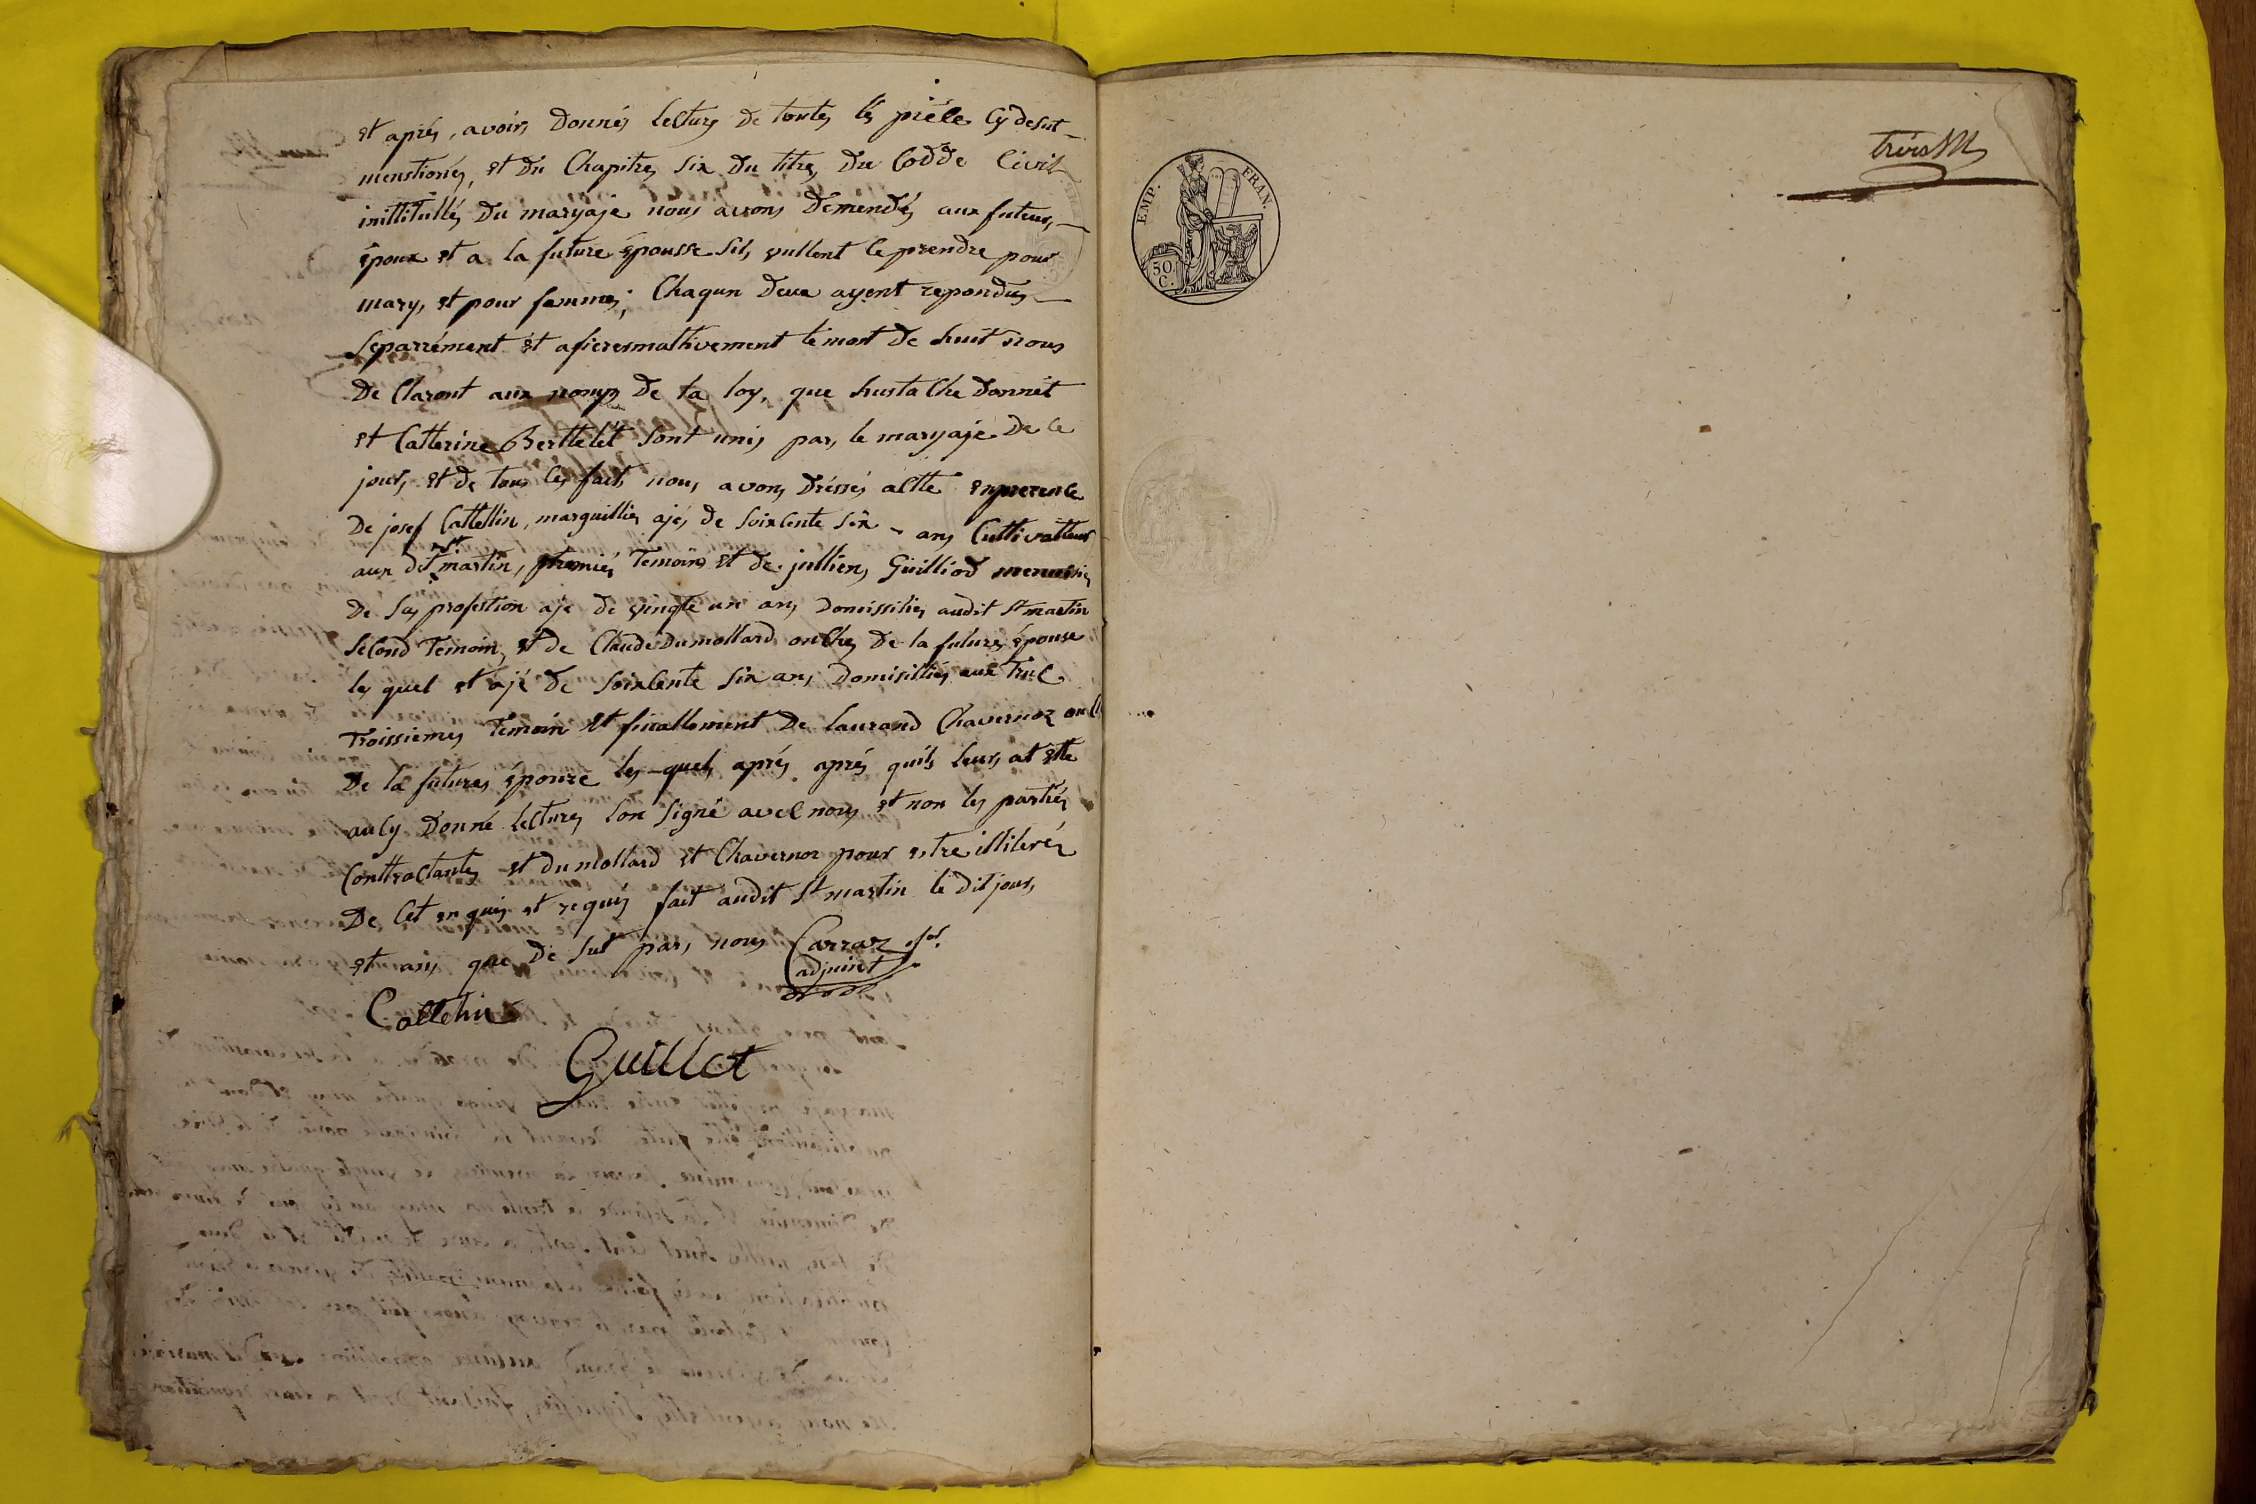 et aprés, avoir, Donnés lecture De toutes lés pieèle Cy desut
menstionés, et Du Chapitre, Six Du titre, Du Codde Civil
inttitullés Du maryaje nous avons Demendés aux futeur,
époux et a la future épousse sils vullent le prendre pour
mary, et pour femmes; Chaqun Deux ayent repondus
Separrément et afieresmattivement le mot de huit nous
De Claront aux nomps De la loy, que hustaChe Donnét
et Catterine Berttelét Sont unis par, le maryaje De Ce
jour, et de tous Ces fait, nous avons Dréssés actte enprerence
De josef Cattellin, marguillier ajés de Soixcente Six ans Cultivatteur
aux dit st martin, premiés Temoins et de jullien, Guilliod menussier
De Sas profestion aje de vingte un ans Domissiliés audit st martin
SeCond Temoin, et de Claude Dumollard onCles De la future, épouse
les quel et ajé De Soixcente Six ans Domisilliés aux Truc
Troissiemes Temoin et finallement De laurand Chavernoz onCl
De la futures épouze les quels aprés aprés quils leurs at ette
aucy Donné lecture, Son Signé avec nous et non les partiés
Conttractantes et Dumollard et Chavernoz pour estre illiterés
De Cet enquis et requis fait audit st martin le Dit jour,
et ans que De Sut par, nous Carraz
adjoint
Cattelin
Guillot
trois
EMP. FRAN.
50.
C.